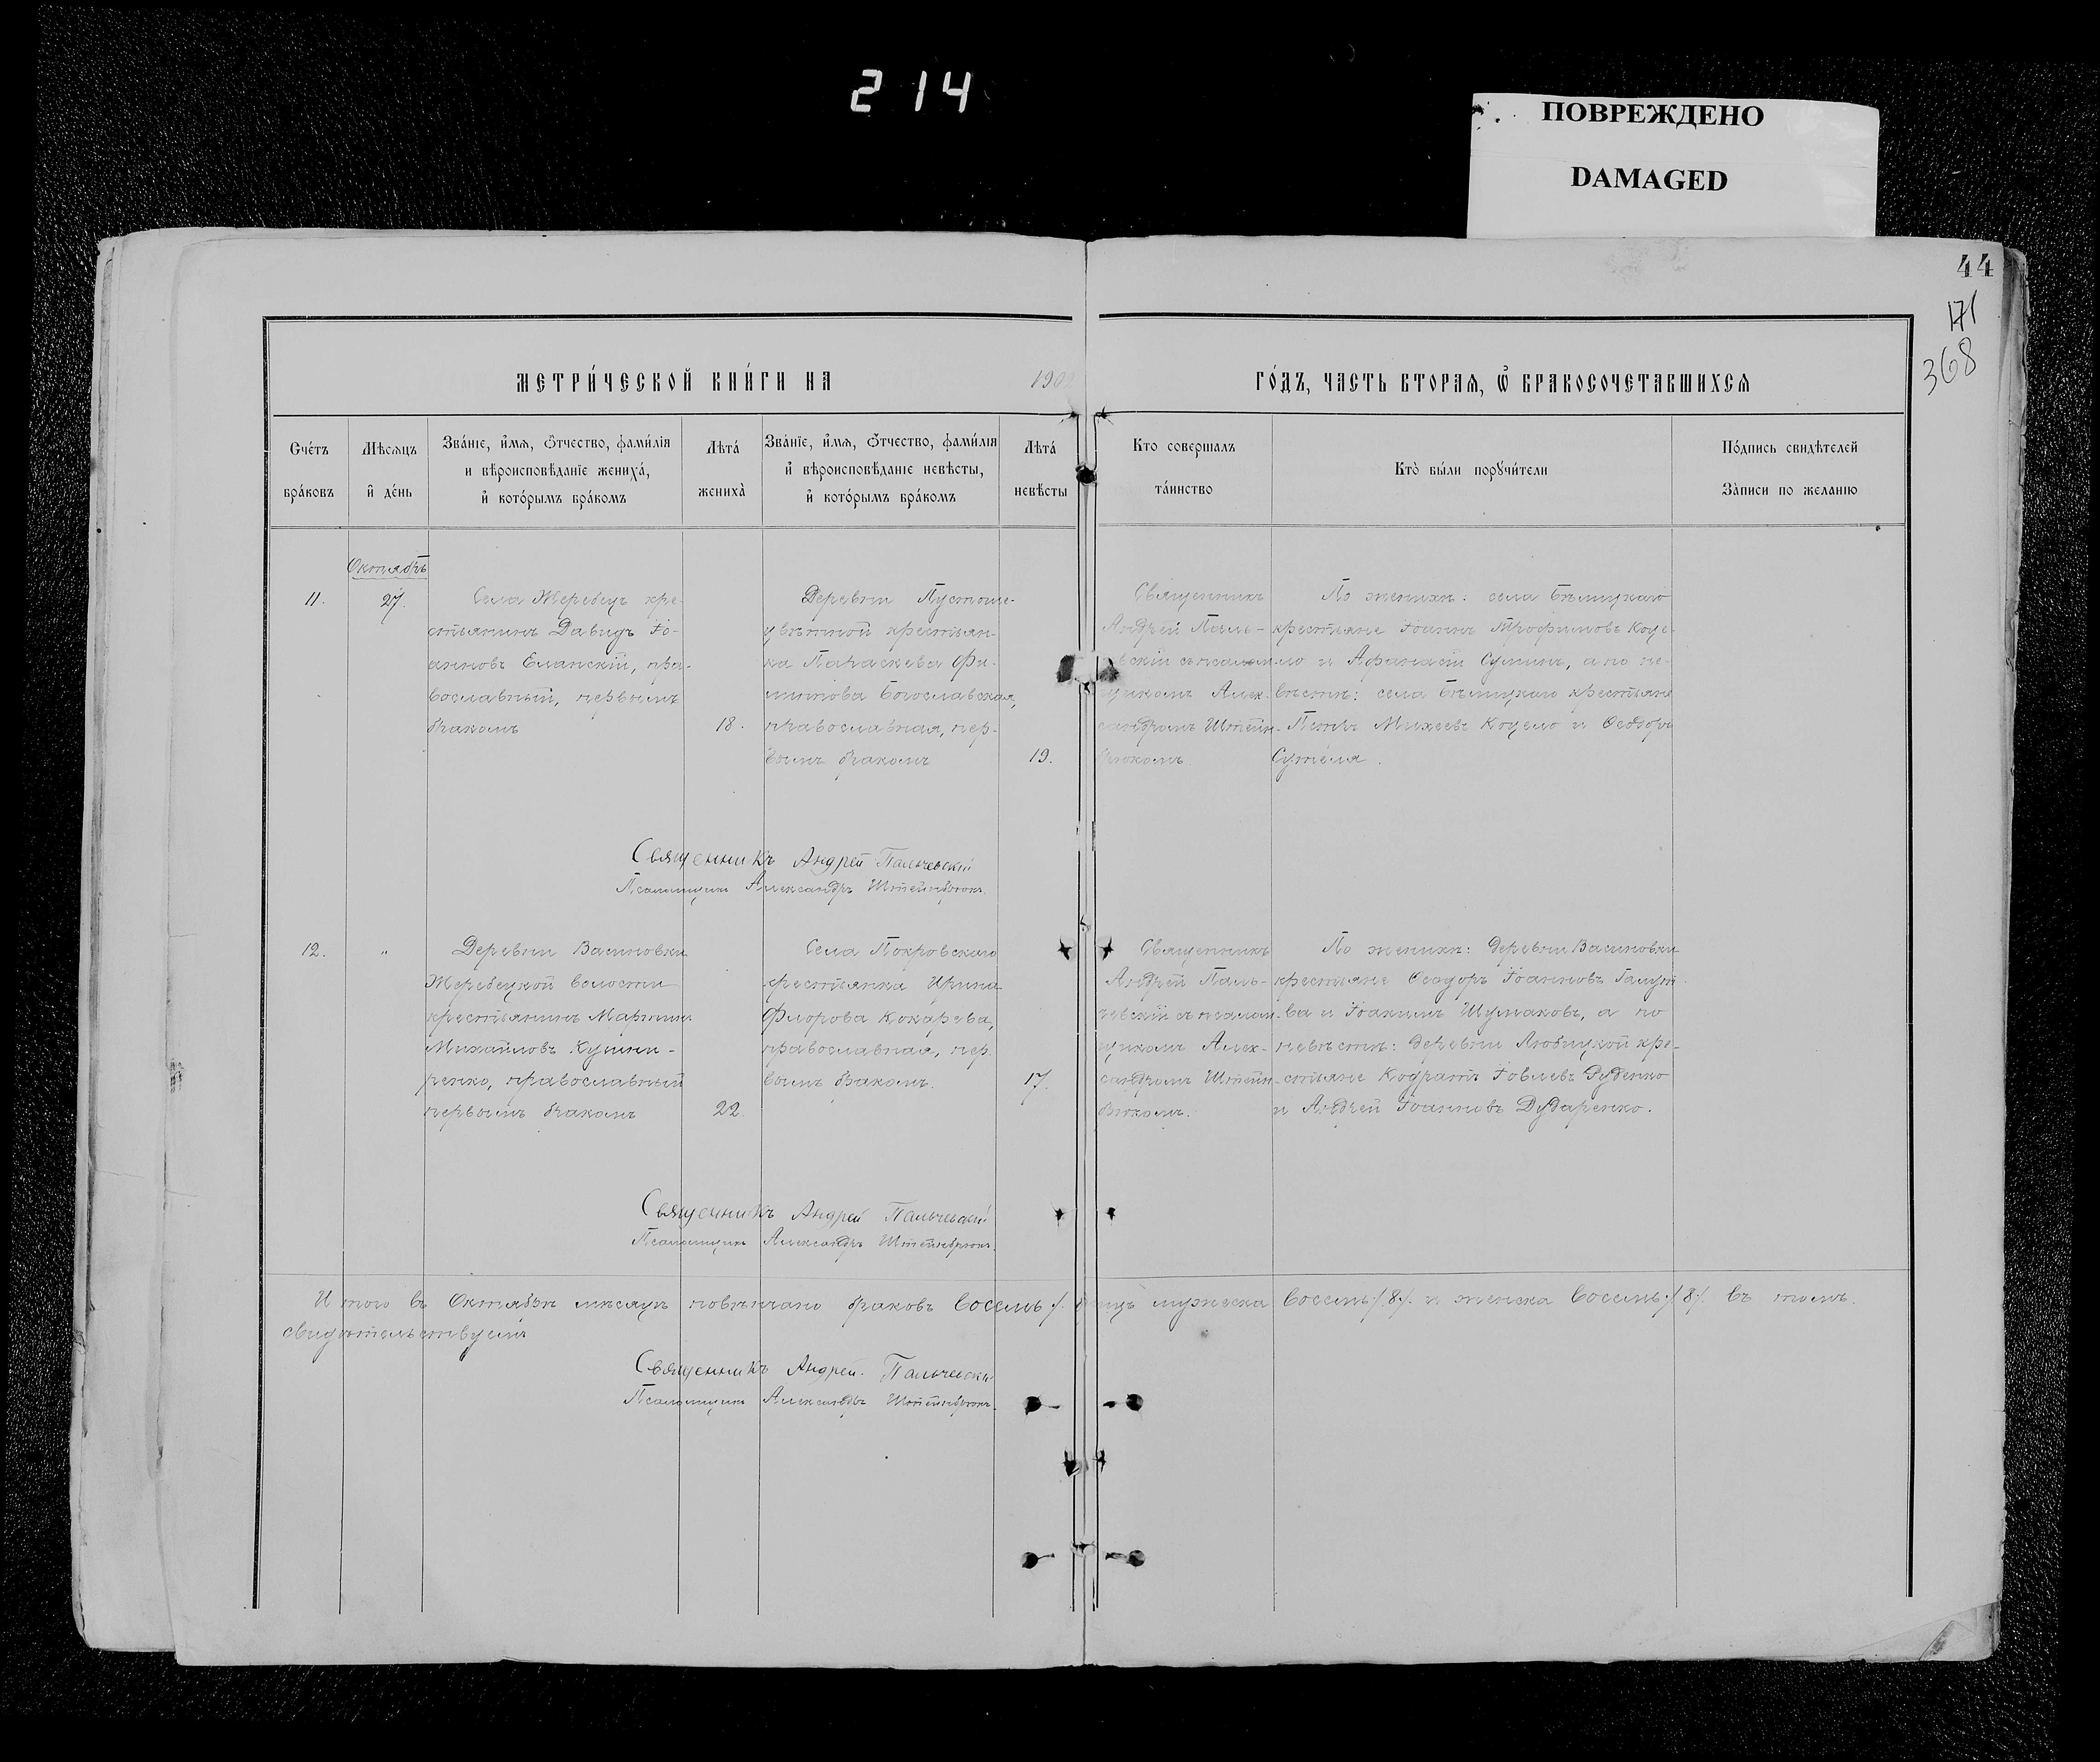 214
ПОВРЕЖДЕНО
DAMAGED
44
171
368
МЕТРИ́ЧЕСКОЙ КНИ́ГИ НА 1902 ГО́ДЪ, ЧАСТЬ ВТОРАЯ, Ѡ҆ БРАКОСОЧЕТАВШИХСЯ
Сче́тъ
бра́ковъ
Мѣсяцъ
и҆ де́нь
Зва́ніе, и҆́мя, ѻ҆́тчество, фами́лія
и вѣроисповѣ́даніе жениха́,
и҆ кото́рымъ бра́комъ
Лѣта́
жениха̀
Зва́ніе, и҆́мя, ѻ҆́тчество, фами́лія
и҆ вѣроисповѣ́даніе невѣ́сты,
и҆ кото́рымъ бра́комъ
Лѣта́
невѣ́сты
Кто совершалъ
та́инство
Кто̀ бы́ли порꙋчи́тели
По́дпись свидѣтелей
За̀писи по желанію
Октябрь
11.
27.
Села Жеребецъ кре-
стьянинъ Давидъ Іо-
анновъ Еланскій, пра-
вославный, первымъ
бракомъ
18.
Деревни Пустоше-
крестьян-
ка Параскева Фи-
Богославская,
православная, пер-
вымъ бракомъ
19.
Священникъ
Андрей Паль-
съ псалом-
щикомъ Алек-
сандромъ Штейн-
По женихѣ: села Бѣлицкаго
крестьяне Іоаннъ Трофимовъ Коце-
ло и Афанасій а по не-
вѣстѣ: села Бѣлицкаго крестьяне
Петръ Михеевъ Коцело и Ѳеодоръ
Сутеля.
Священникъ Андрей Пальчевскій
Псаломщикъ Александръ Штейнбрюкъ.
12.
"
Деревни Васиновки
Жеребецкой волости
крестьянинъ Мартинъ
Михайловъ
православный
первымъ бракомъ
22.
Села Покровскаго
крестьянка Ирина
Флорова Кокарева,
православная, пер-
вымъ бракомъ.
17.
Священникъ
Андрей Паль-
чевскій съ псалом-
щикомъ Алек-
сандромъ Штейн-
брюкомъ.
По женихѣ: деревни Васиновки
крестьяне Ѳеодоръ Іоанновъ
ва и Іоакимъ Шумаковъ, а по
невѣстѣ: деревни Любицкой кре-
стьяне Кодратъ Іовлевъ Руденко
и Андрей Іоанновъ Дударенко.
Священникъ Андрей Пальчевскій
Псаломщикъ Александръ Штейнбрюкъ.
Итого въ Октябрѣ мѣсяцѣ повѣнчано браковъ восемь /. лицъ мужеска восемь /8/. и женска восемь /8/. въ томъ
свидѣтельствуемъ
Священникъ Андрей Пальчевскій
Псаломщикъ Александръ Штейнбрюкъ.